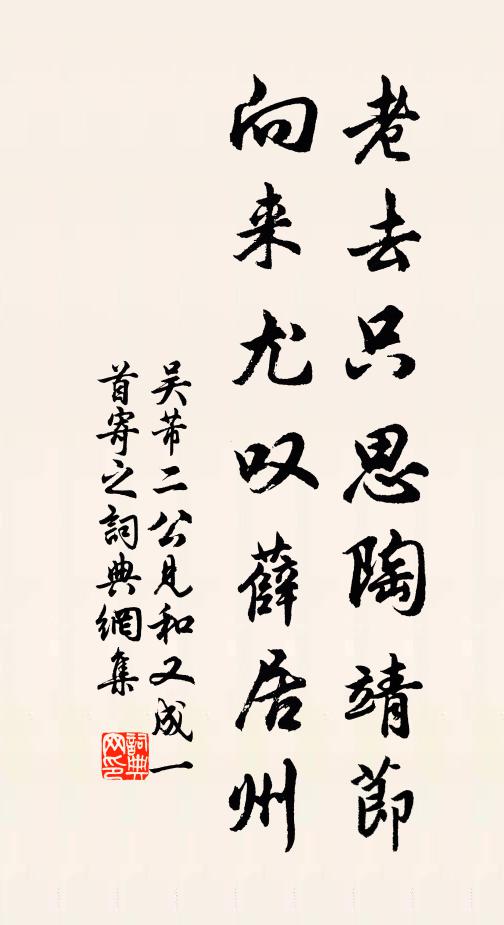 老去只思陶靖節
向来尤叹薛居州
吴芾二公見和又成一
首寄之詞典網集
詞典网印